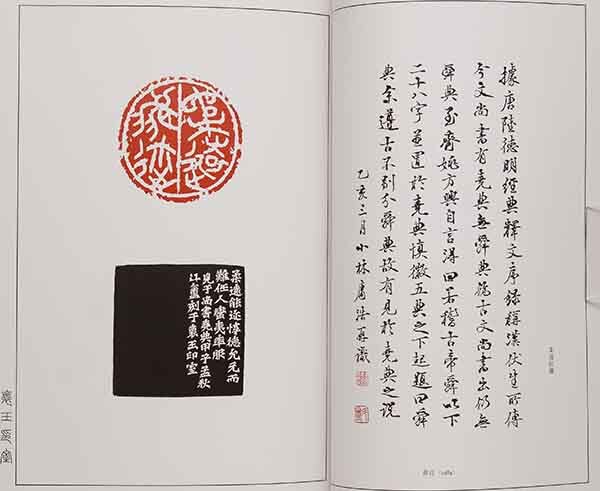 柔遠能邇
柔遠能邇惇德允元而
難任人蠻夷率服
見于尚書堯典甲子孟秋
斗盦刻于褱玉印室
褱玉印室
據唐陸德明經典釋文序錄稱漢伏生所傳
今文尚書有堯典無舜典古文尚書出仍無
舜典至齊姚方興自言得曰若稽古帝舜以下
二十八字並置於堯典慎徽五典之下起題曰舜
典余遵古不別分舜典故有見於堯典之說
乙亥三月小林庸浩再識
柔遠能邇
(1984)